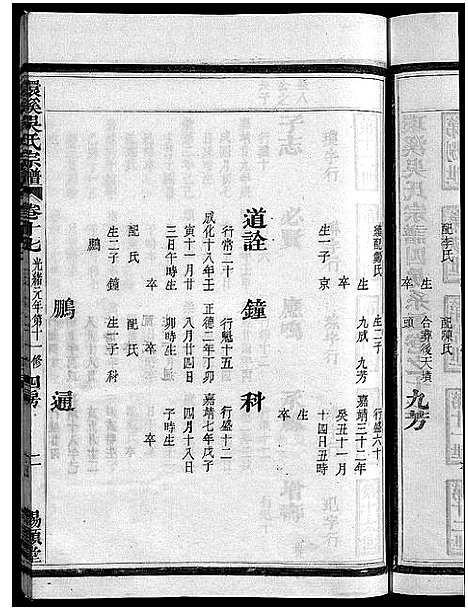 配李氏 配陳氏
生 合葬後天墳
卒 頭
九芳
繼配鄭氏 生二子 行盛六十
生 九成 九芳 嘉靖三十二年
生一子 京 癸丑十一月
卒 十四日丑時
生
卒
道詮 鐘 科
行常二十 行魁十五 行盛十二
成化十八年壬 正德二年丁卯 嘉靖七年戊子
寅十一月廿 八月廿四日 四月十八日
三日午時生 卯時生 子時生
卒 卒 卒
配氏 配氏
生二子 鐘 生一子 科
鵬
鵬 通
環溪吳氏宗譜 卷十七 光緒元年第十一修 四房 二 錫類堂